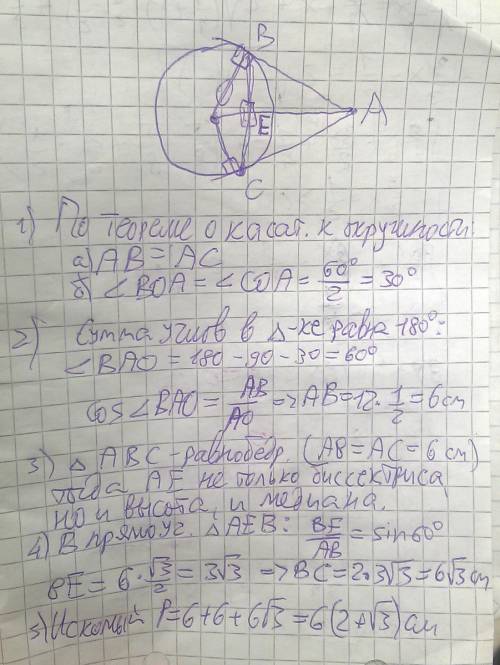 B
A
E
C
1) По теореме о касат. к окружности:
а) AB = AC
б) ∠BOA = ∠COA = 60°/2 = 30°
2) Сумма углов в Δ-ке равна 180°:
∠BAO = 180 - 90 - 30 = 60°
cos∠BAO = AB/AO => AB = 12 · 1/2 = 6 см
3) Δ ABC - равнобедр. (AB = AC = 6 см)
тогда AE не только биссектриса,
но и высота, и медиана.
4) В прямоуг. ΔAEB: BE/AB = sin60°
BE = 6 · √3/2 = 3√3 => BC = 2·3√3 = 6√3 см
5) Искомый P = 6 + 6 + 6√3 = 6(2 + √3) см